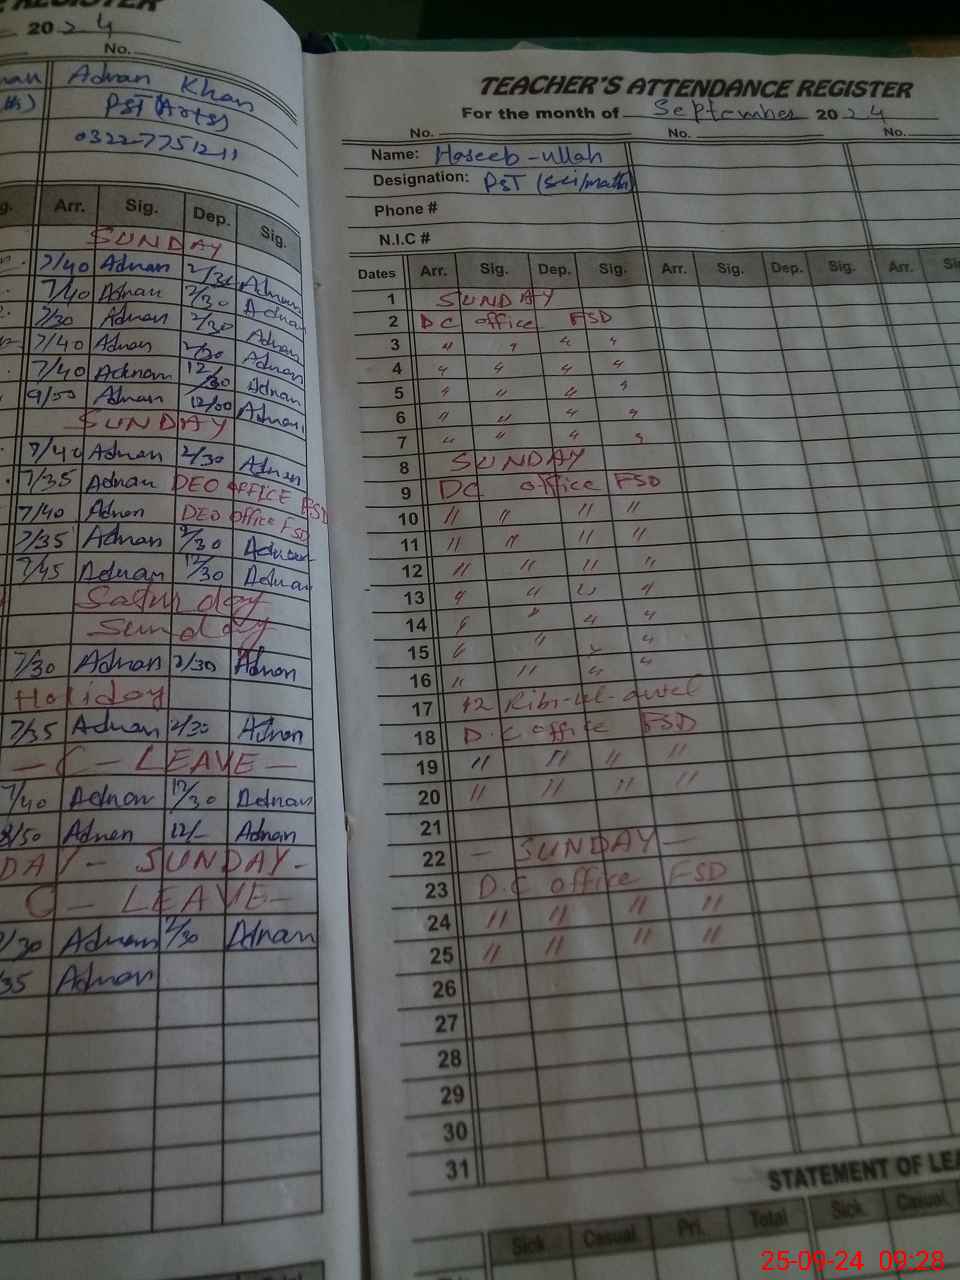 REGISTER
2024
No.
Adnan Khan
PST (Arts)
0322-7751211
Arr. Sig. Dep. Sig.
SUNDAY
7/40 Adnan 2/30 Adnan
7/40 Adnan 2/30 Adnan
7/30 Adnan 2/30 Adnan
7/40 Adnan 2/30 Adnan
7/40 Adnan 12/30 Adnan
9/00 Adnan 12/00 Adnan
SUNDAY
7/40 Adnan 2/30 Adnan
7/35 Adnan DEO OFFICE FSD
7/40 Adnan DEO office FSD
7/35 Adnan 2/30 Adnan
7/45 Adnan 12/30 Adnan
Saturday
Sunday
7/30 Adnan 2/30 Adnan
Holiday
7/35 Adnan 2/30 Adnan
— C — LEAVE —
7/40 Adnan 12/30 Adnan
8/50 Adnan 12/- Adnan
DAY - SUNDAY -
C — LEAVE —
7/30 Adnan 2/30 Adnan
35 Adnan
TEACHER'S ATTENDANCE REGISTER
For the month of September 2024
No. No. No.
Name: Haseeb-ullah
Designation: PST (sci/math)
Phone #
N.I.C #
Dates Arr. Sig. Dep. Sig. Arr. Sig. Dep. Sig. Arr.
1 SUNDAY
2 DC office FSD
3 " " " "
4 " " " "
5 " " " "
6 " " " "
7 " " " "
8 SUNDAY
9 DC office FSD
10 " " " "
11 " " " "
12 " " " "
13 " " " "
14 " " " "
15 " " " "
16 " " " "
17 12 Ribi-ul-awal
18 D.C office FSD
19 " " " "
20 " " " "
21
22 — SUNDAY —
23 D.C office FSD
24 " " " "
25 " " " "
26
27
28
29
30
31
STATEMENT OF LEA
Sick Casual Pri. Total Sick Casual
25-09-24 09:28